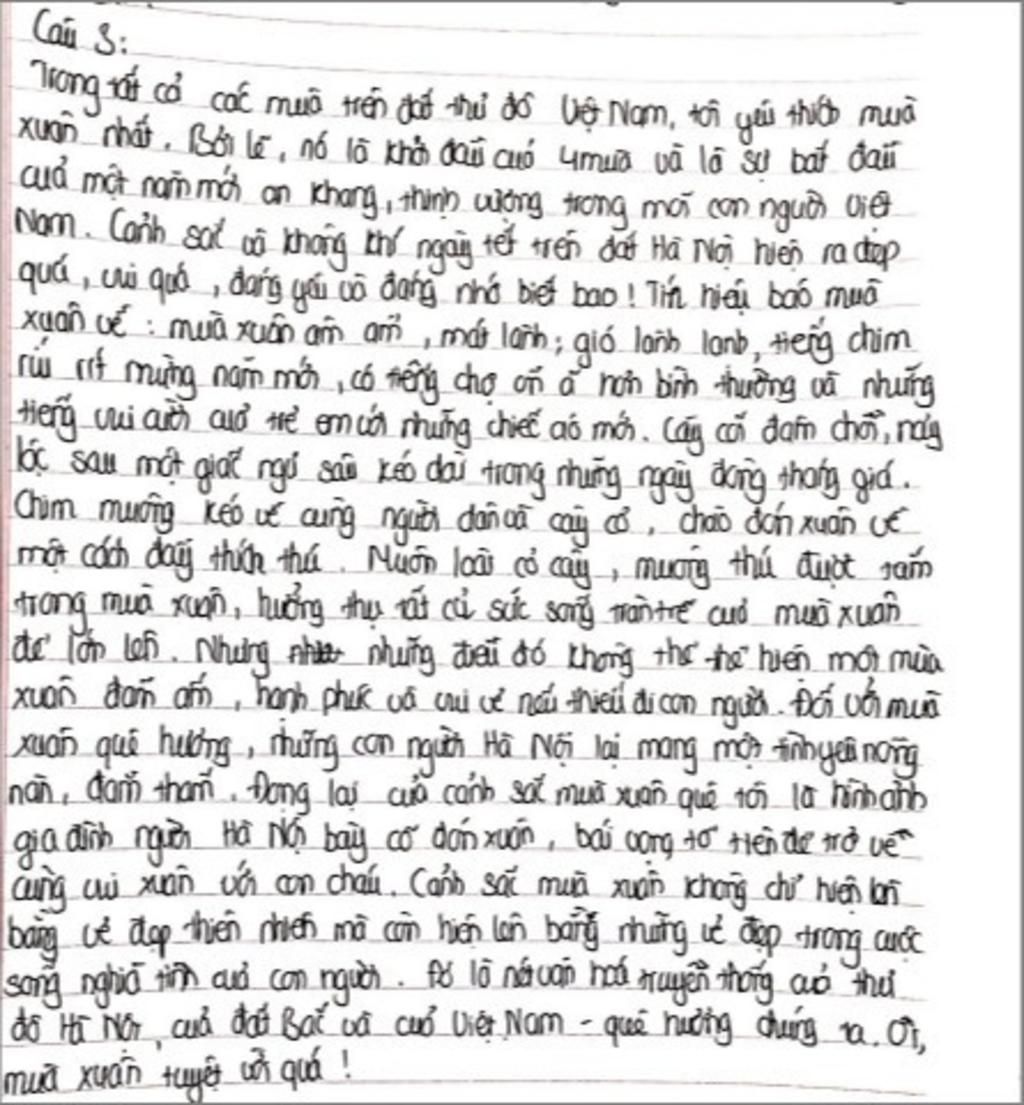 Câu 3:
Trong tất cả các mùa trên đất thủ đô Việt Nam, tôi yêu thích mùa
xuân nhất. Bởi lẽ, nó là khởi đầu của 4 mùa và là sự bắt đầu
của một năm mới an khang, thịnh vượng trong mỗi con người Việt
Nam. Cảnh sắc và không khí ngày tết trên đất Hà Nội hiện ra đẹp
quá, vui quá, đáng yêu và đáng nhớ biết bao! Tín hiệu báo mùa
xuân về: mùa xuân ấm áp, mát lành; gió lành lạnh, tiếng chim
ríu rít mừng năm mới, có tiếng chợ ồn ã hơn bình thường và những
tiếng vui cười của trẻ em với những chiếc áo mới. Cây cối đâm chồi, nảy
lộc sau một giấc ngủ sâu kéo dài trong những ngày đông tháng giá.
Chim muông kéo về cùng người dân và cây cỏ, chào đón xuân về
một cách đầy thích thú. Muôn loài cỏ cây, muông thú được tắm
trong mùa xuân, hưởng thụ tất cả sức sống tràn trề của mùa xuân
để lớn lên. Nhưng những điều đó không thể thể hiện một mùa
xuân đầm ấm, hạnh phúc và vui vẻ nếu thiếu đi con người. Đối với mùa
xuân quê hương, những con người Hà Nội lại mang một tình yêu nồng
nàn, đằm thắm. Đọng lại của cảnh sắc mùa xuân quê tôi là hình ảnh
gia đình người Hà Nội bày cỗ đón xuân, bái vọng tổ tiên để trở về
cùng vui xuân với con cháu. Cảnh sắc mùa xuân không chỉ hiện lên
bằng vẻ đẹp thiên nhiên mà còn hiện lên bằng những vẻ đẹp trong cuộc
sống nghĩa tình của con người. Đó là nét văn hoá truyền thống của thủ
đô Hà Nội, của đất Bắc và của Việt Nam - quê hương chúng ta. Ôi,
mùa xuân tuyệt vời quá!